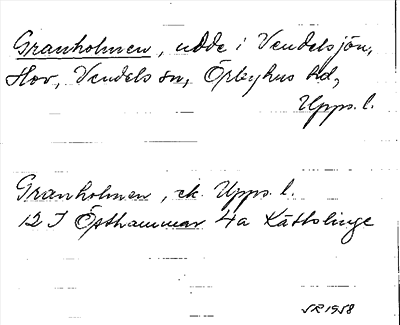 Granholmen, udde i Vendelsjön,
Hov, Vendels sn, Örbyhus hd,
Upps. l.
Granholmen, ek. Upps. l.
12 I Östhammar 4a Kättslinge
SR 1958